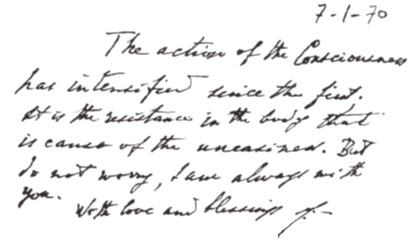 7-1-70
The action of the Consciousness
has intensified since the first.
It is the resistance in the body that
is cause of the uneasiness. But
do not worry, I am always with
you.
With love and blessings